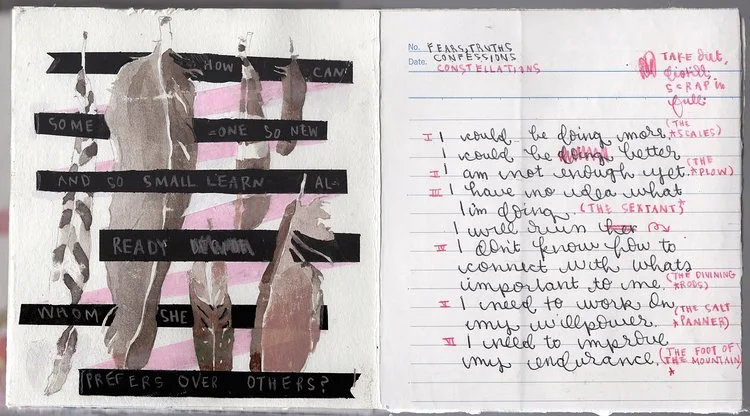 HOW CAN
SOME =ONE SO NEW
AND SO SMALL LEARN AL=
READY
WHOM SHE
PREFERS OVER OTHERS?
No. FEARS, TRUTHS
CONFESSIONS
Date. CONSTELLATIONS
TAKE OUT,
distill,
SCRAP in
full:
I I could be doing more. (THE *SCALES)
I could be doing better
II I am not enough yet. (THE *PLOW)
III I have no idea what
I'm doing. (THE SEXTANT)*
I will ruin her
IV I don't know how to
connect with whats
important to me. (THE DIVINING *RODS)
V I need to work on
my willpower. (THE SALT *PANNER)
VI I need to improve
my endurance. (THE FOOT OF THE MOUNTAIN)
*